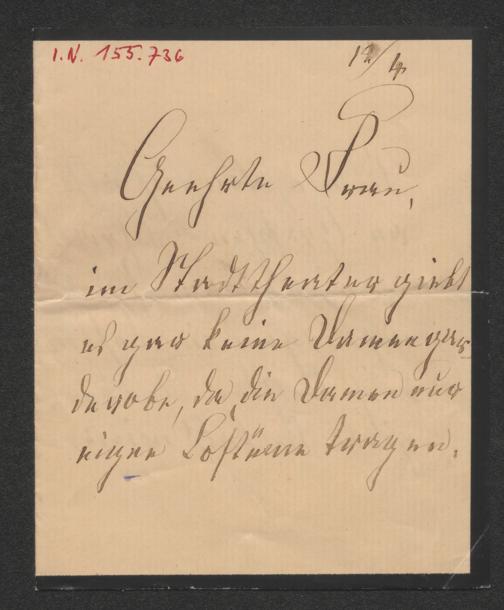 I.N. 155.736
12/4
Geehrte Frau,
im Stadttheater giebt
es gar keine Damengar-
derobe, da die Damen nur
eigne Costüme tragen.